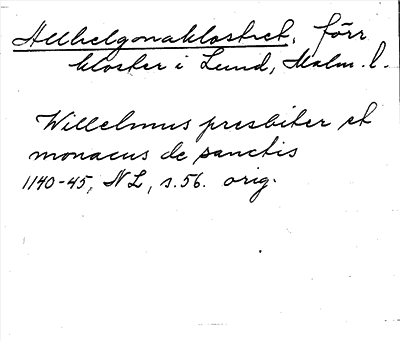 Allhelgonaklostret, förr
kloster i Lund, Malm. l.
Willelmus presbiter et
monacus de sanctis
1140-45, NL, s. 56. orig.